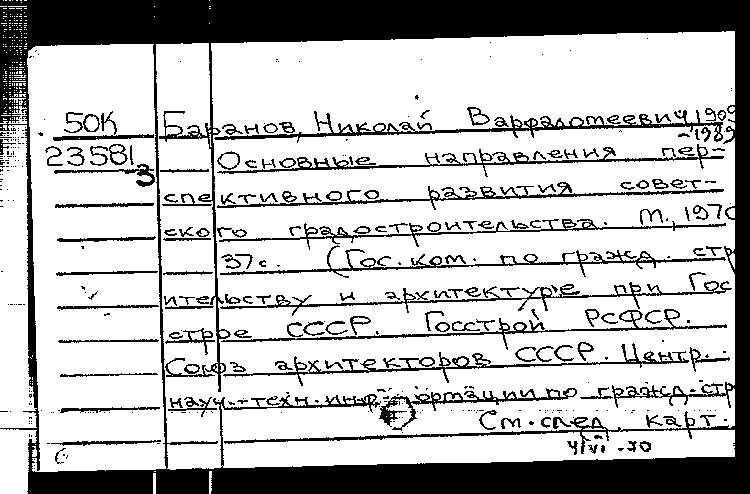 50К Баранов, Николай Варфаломеевич 1909
-1989
23581 Основные направления пер-
3
спективного развития совет-
ского градостроительства. М., 1970
37с. (Гос. ком. по гражд. стр
ительству и архитектуре при Гос
строе СССР. Госстрой РСФСР.
Союз архитекторов СССР. Центр.
науч.-техн. информации по гражд. стр
См. след. карт.
4/VI-70